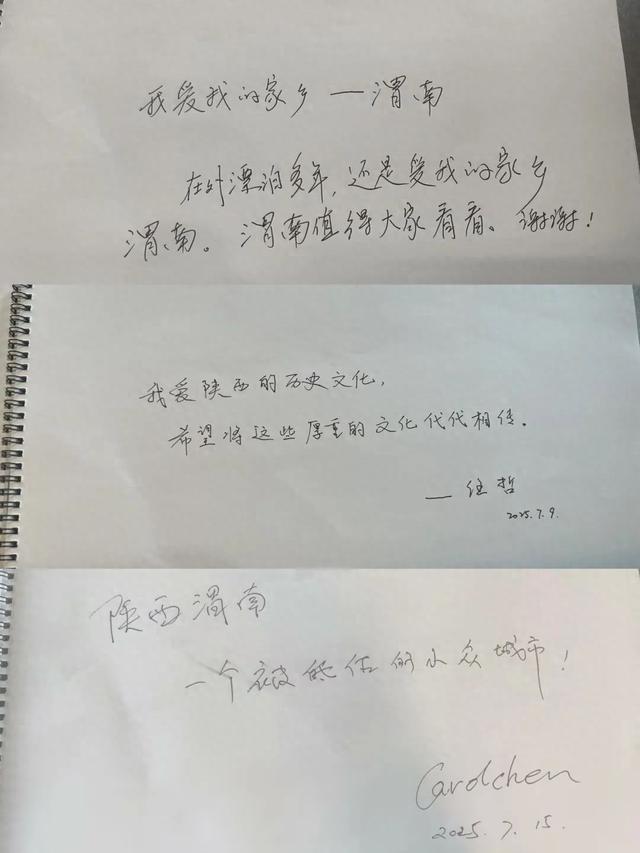 我爱我的家乡——渭南
在外漂泊多年,还是爱我的家乡
渭南。渭南值得大家看看。谢谢!
我爱陕西的历史文化,
希望将这些厚重的文化代代相传。
——任哲
2025.7.9.
陕西渭南
一个被低估的小众城市!
Carolchen
2025.7.15.